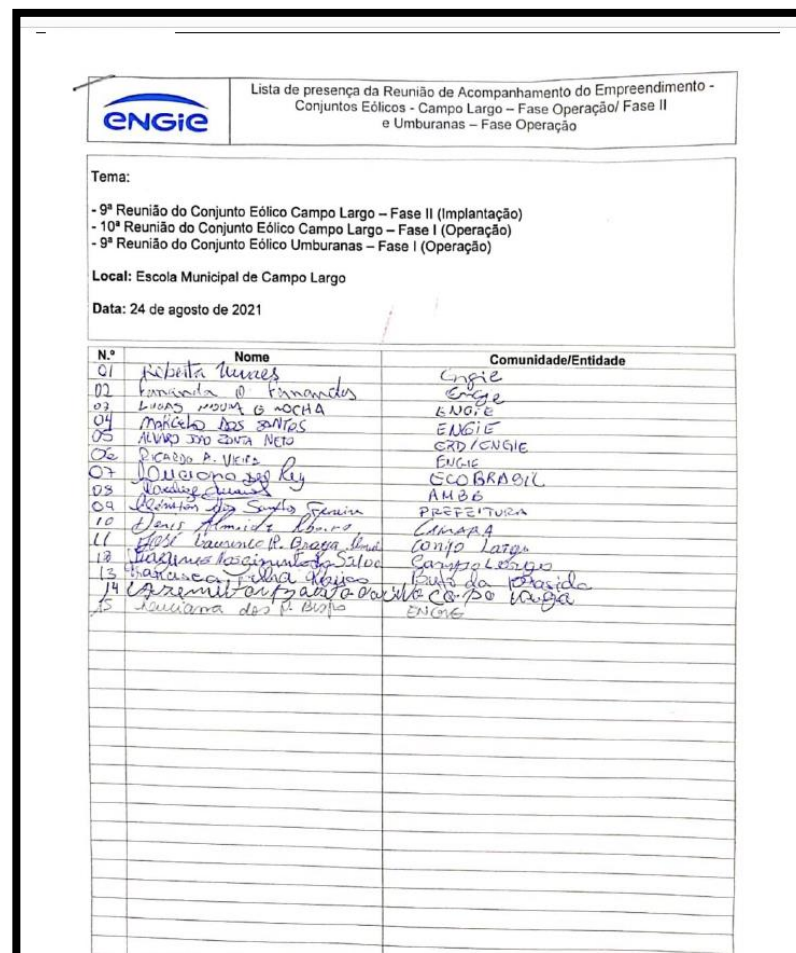 Lista de presença da Reunião de Acompanhamento do Empreendimento -
Conjuntos Eólicos - Campo Largo – Fase Operação/ Fase II
e Umburanas – Fase Operação
ENGIE
Tema:
- 9ª Reunião do Conjunto Eólico Campo Largo – Fase II (Implantação)
- 10ª Reunião do Conjunto Eólico Campo Largo – Fase I (Operação)
- 9ª Reunião do Conjunto Eólico Umburanas – Fase I (Operação)
Local: Escola Municipal de Campo Largo
Data: 24 de agosto de 2021
N.º Nome Comunidade/Entidade
01 Roberta Engie
02 Fernanda Fernandes Engie
03 LUCAS ENGIE
04 MARCELO DOS SANTOS ENGIE
05 ALVARO JOÃO NETO ENGIE
06 RICARDO A. VIEIRA ENGIE
07 Luciano Rey ECOBRASIL
08 AMBB
09 dos Santos Ferreira PREFEITURA
10 Denis Almeida CAMARA
11 José Laurenço R. Braga Largo
12 Nascimento da Silva Campo Largo
13 Francisca da
14 Batista
15 dos Bispo ENGIE